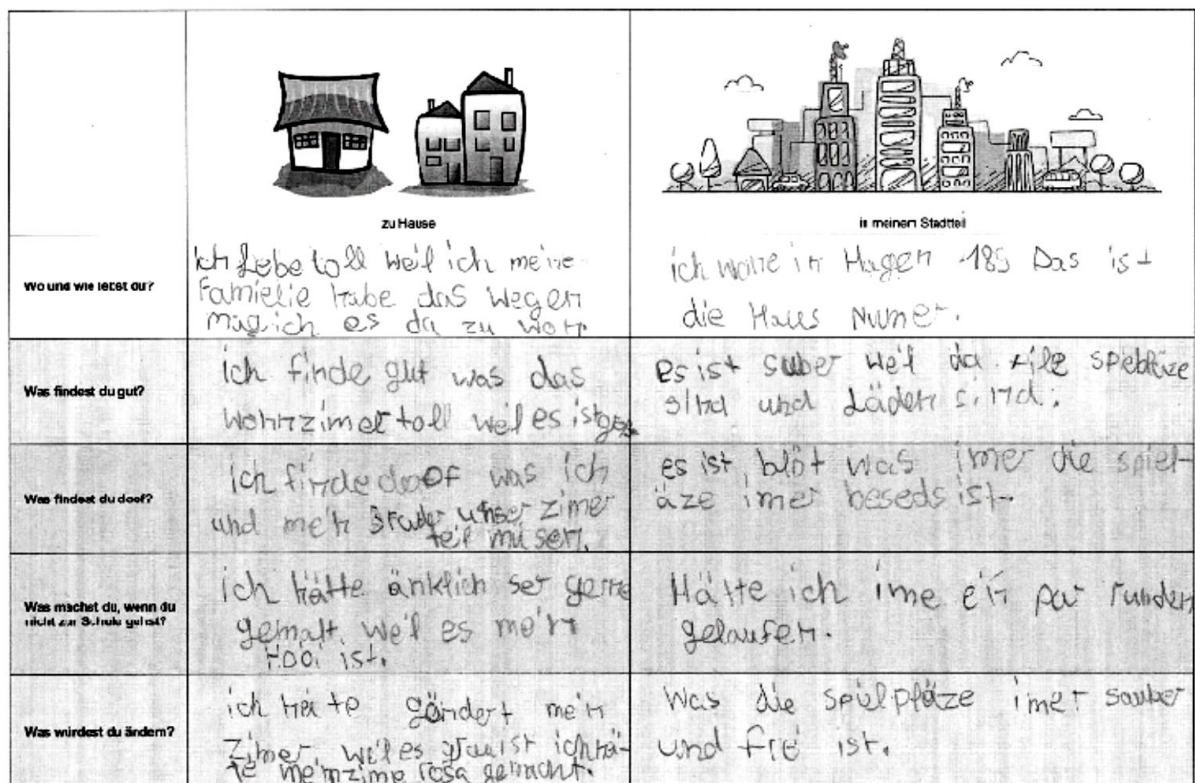 zu Hause
in meinem Stadtteil
Wo und wie lebst du?
ich Lebe toll weil ich meine
Familie habe das wegen
mag ich es da zu won.
ich wone in Hagen 185 Das ist
die Haus Numer.
Was findest du gut?
ich finde gut was das
wonnzimer toll weil es ist
es ist suber weil da file spiebläze
sind und Läden sind.
Was findest du doof?
ich finde doof was ich
und mein Bruder unser zimer
teil müsen.
es ist blöt was imer die spiel-
äze imer beseds ist.
Was machst du, wenn du
nicht zur Schule gehst?
ich hätte änklich ser gerne
gemalt. weil es mein
Hobi ist.
Hätte ich ime ein par runden
gelaufen.
Was würdest du ändern?
ich hätte gändert mein
Zimer weil es grau ist ich hä-
te mein zime rosa gemacht.
Was die spielpläze imer sauber
und frei ist.